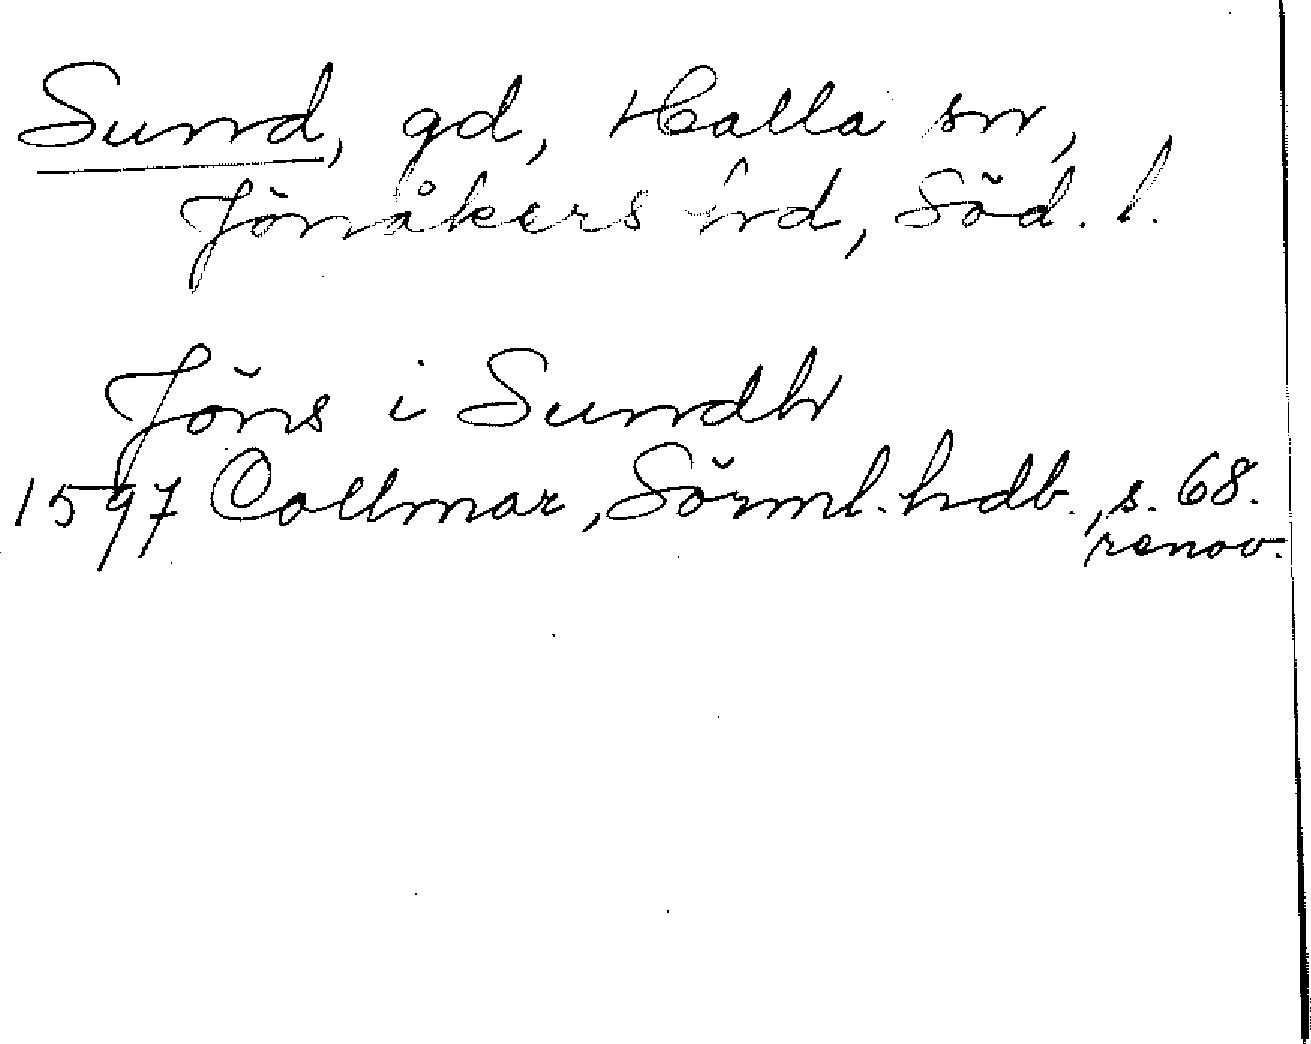 Sund, gd, Halla sn,
Jönåkers hrd, Söd. l.
Jöns i Sundh
1597 Collmar, Sörml. hdb., s. 68.
renov.